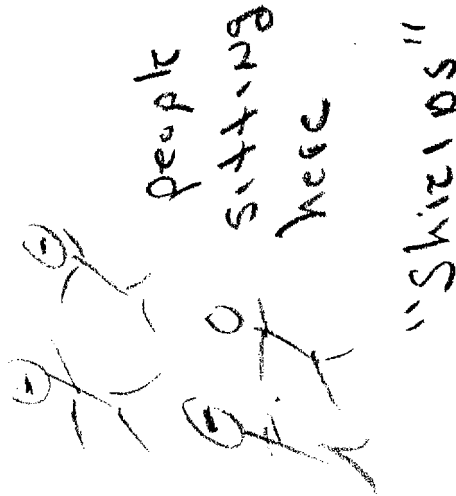 people
sitting
here
"ShielDS"